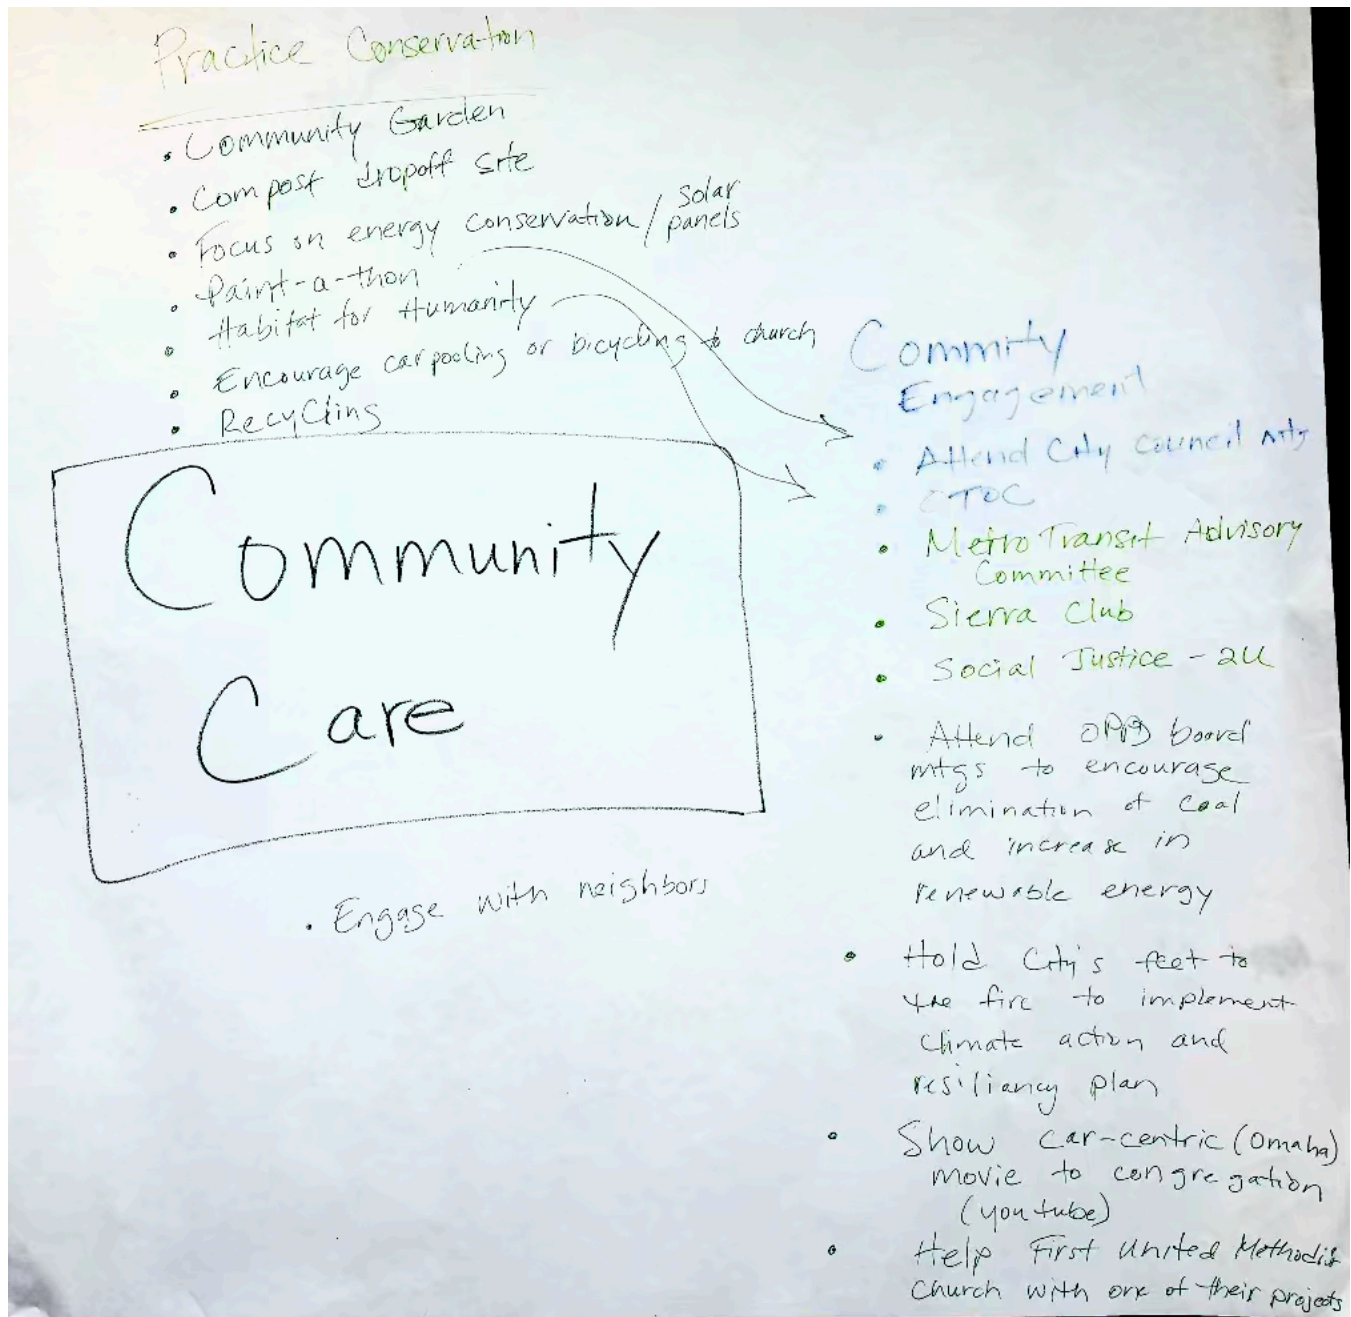 Practice Conservation
• Community Garden
• Compost dropoff site
• Focus on energy conservation / solar
panels
• Paint-a-thon
• Habitat for Humanity
• Encourage carpooling or bicycling to church
• Recycling
Community
Care
• Engage with neighbors
Commity
Engagement
• Attend City Council mtgs
• TOC
• Metro Transit Advisory
Committee
• Sierra Club
• Social Justice - 2U
• Attend OPPD board
mtgs to encourage
elimination of coal
and increase in
renewable energy
• Hold City's feet to
the fire to implement
climate action and
resiliancy plan
• Show car-centric (Omaha)
movie to congregation
(youtube)
• Help First United Methodist
Church with one of their projects